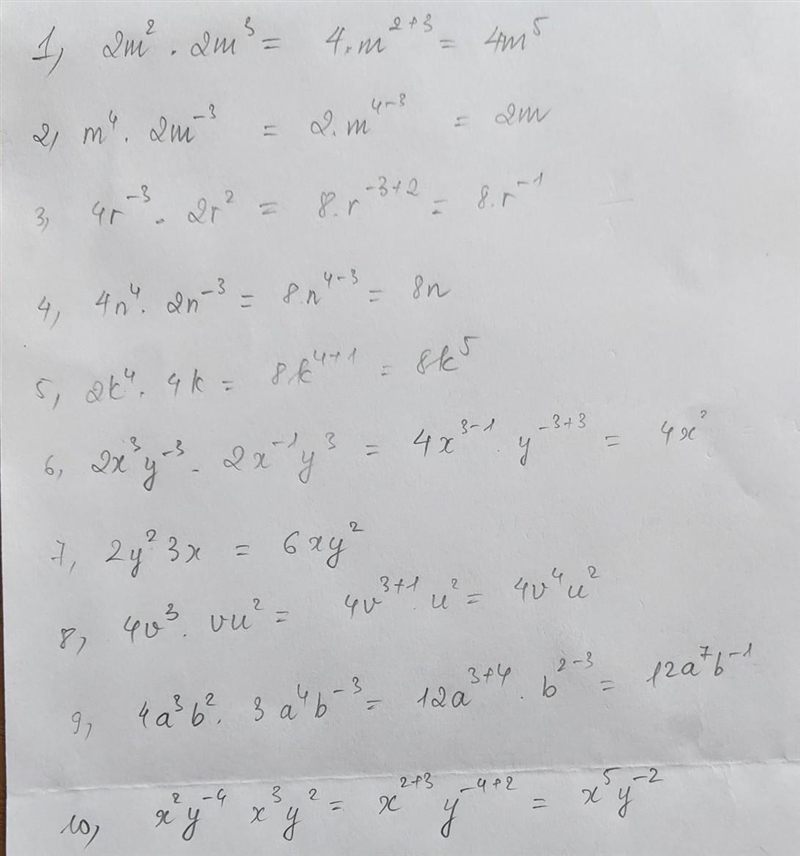 1, 2m² . 2m³ = 4.m²⁺³ = 4m⁵
2, m⁴ . 2m⁻³ = 2.m⁴⁻³ = 2m
3, 4r⁻³ . 2r² = 8.r⁻³⁺² = 8.r⁻¹
4, 4n⁴ . 2n⁻³ = 8.n⁴⁻³ = 8n
5, 2k⁴ . 4k = 8k⁴⁺¹ = 8k⁵
6, 2x³y⁻³ . 2x⁻¹y³ = 4x³⁻¹ . y⁻³⁺³ = 4x²
7, 2y² 3x = 6xy²
8, 4v³ . vu² = 4v³⁺¹ . u² = 4v⁴u²
9, 4a³b² . 3a⁴b⁻³ = 12a³⁺⁴ . b²⁻³ = 12a⁷b⁻¹
10, x²y⁻⁴ x³y² = x²⁺³ y⁻⁴⁺² = x⁵y⁻²